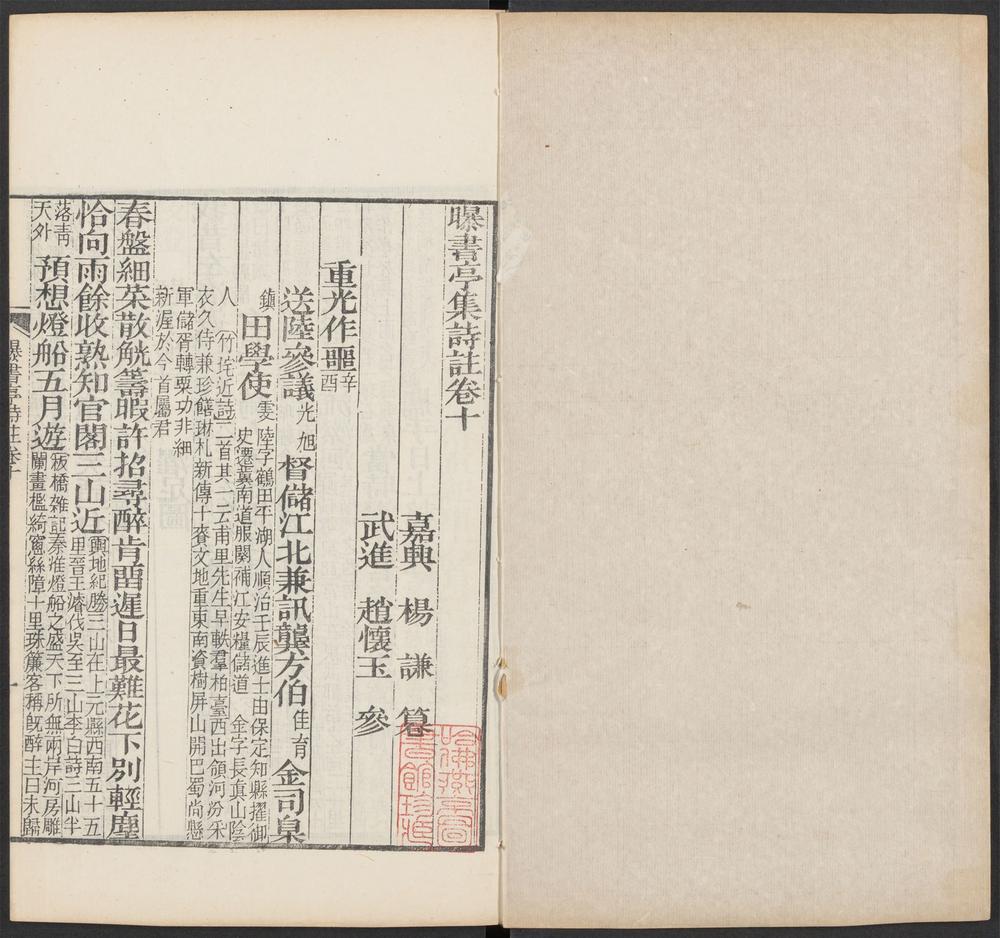 曝書亭集詩註卷十
嘉興 楊 謙 篹
武進 趙懷玉 參
重光作噩辛酉
送陸參議光旭督儲江北兼訊龔方伯佳育金司臬
鎮田學使雯
陸字鶴田平湖人順治壬辰進士由保定知縣擢御
史遷冀南道服闋補江安糧儲道 金字長真山陰
人 竹垞近詩二首其一云甫里先生早軼羣柏臺西出領河汾采
衣久侍兼珍饍琳札新傳十賚文地重東南資樹屏山開巴蜀尚懸
軍儲胥轉粟功非細
新渥於今首屬君
春盤細菜散觥籌暇許招尋醉肯畱遲日最難花下別輕塵
恰向雨餘收熟知官閣三山近
輿地紀勝三山在上元縣西南五十五
里晉王濬伐吳至三山李白詩三山半
落青
天外
預想燈船五月遊
板橋雜記秦淮燈船之盛天下所無兩岸河房雕
闌畫檻綺窻絲障十里珠簾客稱旣醉主曰未歸
曝書亭詩註卷十
一
哈佛燕京圖
書館珍藏